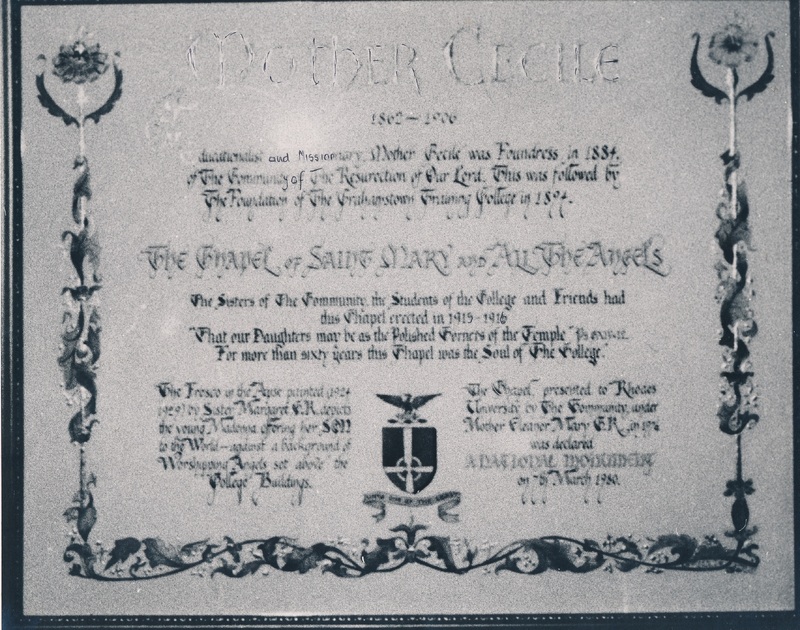 Mother Cecile
1862 — 1906
ducationalist and Missionary, Mother Cecile was Foundress in 1884,
of The Community of The Resurection of Our Lord. This was followed by
The Foundation of The Grahamstown Training College in 1894.
The Chapel of Saint Mary and All The Angels
The Sisters of The Community, the Students of the College and Friends had
this Chapel erected in 1915-1916
"That our Daughters may be as the Polished Corners of the Temple" Ps
For more than sixty years this Chapel was the Soul of The College."
The Fresco in the Apse painted (1924
1929) by Sister Margaret C.R. depicts
the young Madonna offering her SON
to the World — against a background of
Worshipping Angels set above the
College Buildings.
The Chapel, presented to Rhodes
University by The Community, under
Mother Eleanor Mary C.R., in 1976
was declared
A NATIONAL MONUMENT
on 7th March 1980.